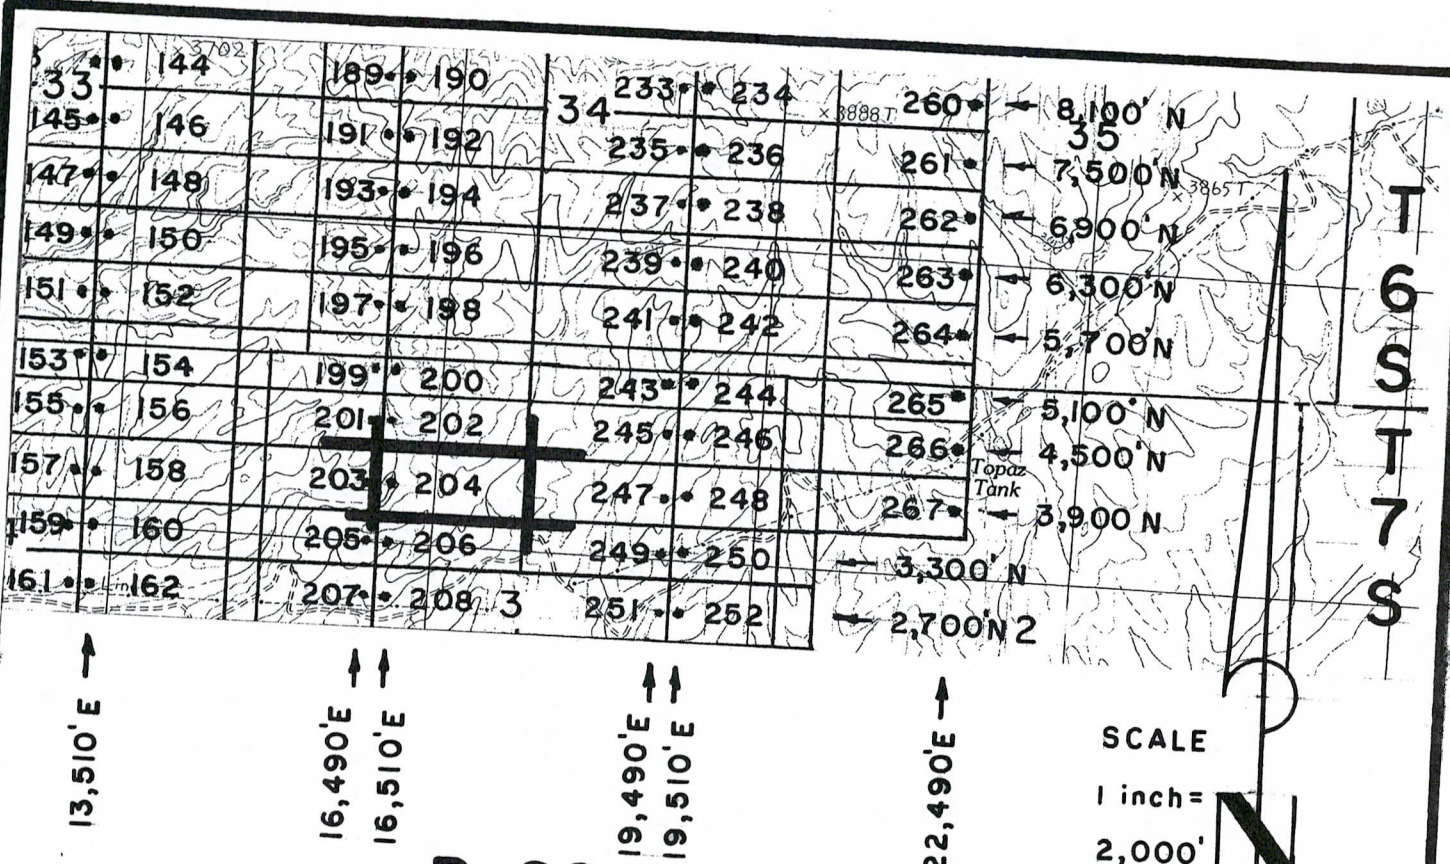 × 3702
144 189 190 233 234 260 8,100' N
33 34 × 3888T 35
145 146 191 192 235 236 261 7,500' N
× 3865 T
147 148 193 194 237 238 262 6,900' N
149 150 195 196 239 240 263 6,300' N
151 152 197 198 241 242 264 5,700' N
153 154 199 200 243 244 265 5,100' N
155 156 201 202 245 246 266 4,500' N
Topaz
Tank
157 158 203 204 247 248 267 3,900 N
159 160 205 206 249 250 3,300' N
161 162 207 208 3 251 252 2,700' N 2
T
6
S
T
7
S
13,510' E
16,490' E
16,510' E
19,490' E
19,510' E
22,490' E
SCALE
1 inch =
2,000'
N